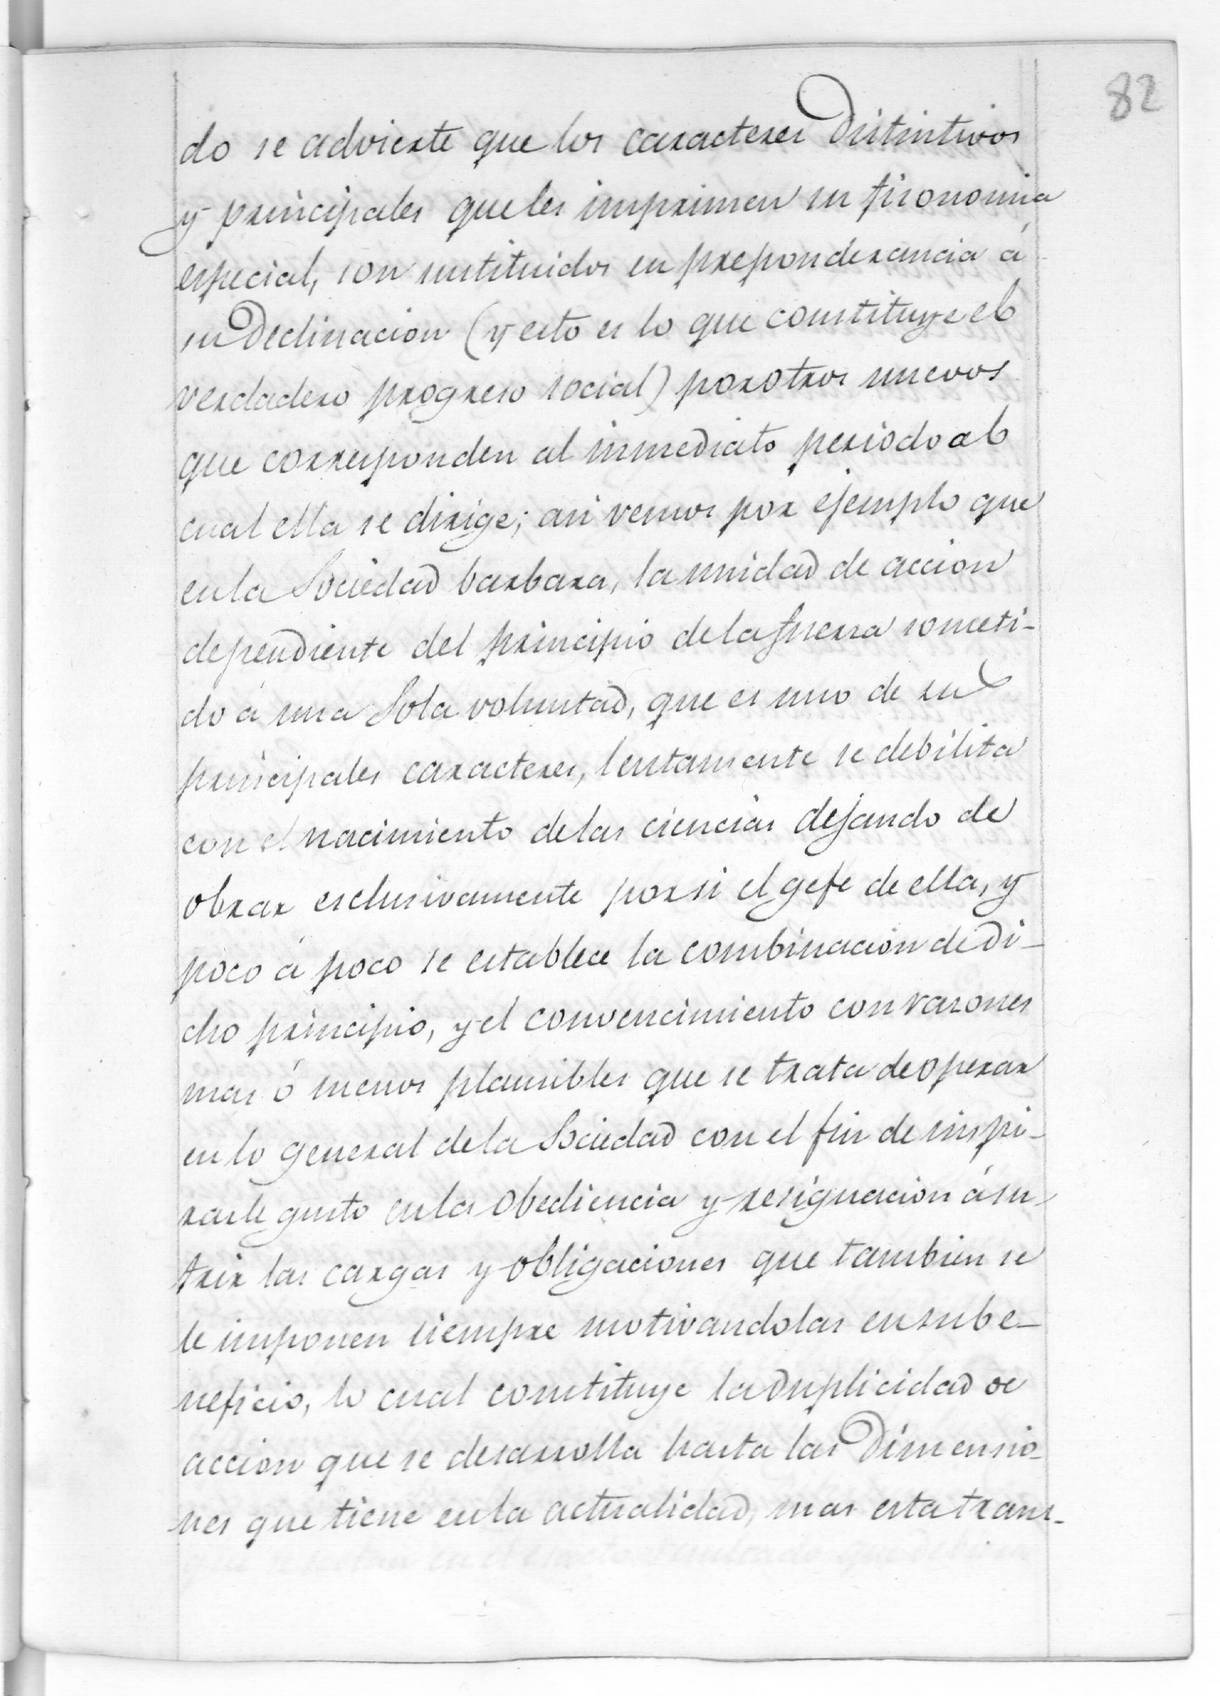 82
do se advierte que los caracteres distintivos
y principales que les imprimen su fisonomia
especial, son sustituidos en preponderancia á
su declinacion (y esto es lo que constituye el
verdadero progreso social) por otros nuevos
que corresponden al inmediato periodo al
cual ella se dirige; asi vemos por ejemplo que
en la Sociedad barbara, la unidad de accion
dependiente del principio de la fuerza someti-
do á una Sola voluntad, que es uno de sus
principales caracteres, lentamente se debilita
con el nacimiento de las ciencias dejando de
obrar esclusivamente por si el gefe de ella, y
poco á poco se establece la combinacion de di-
cho principio, y el convencimiento con razones
mas ó menos plausibles que se trata de operar
en lo general de la Sociedad con el fin de inspi-
rarle gusto en la obediencia y resignacion á su-
frir las cargas y obligaciones que tambien se
le imponen siempre motivandolas en su be-
neficio, lo cual constituye la duplicidad de
accion que se desarrolla hasta las dimensio-
nes que tiene en la actualidad, mas esta trans-